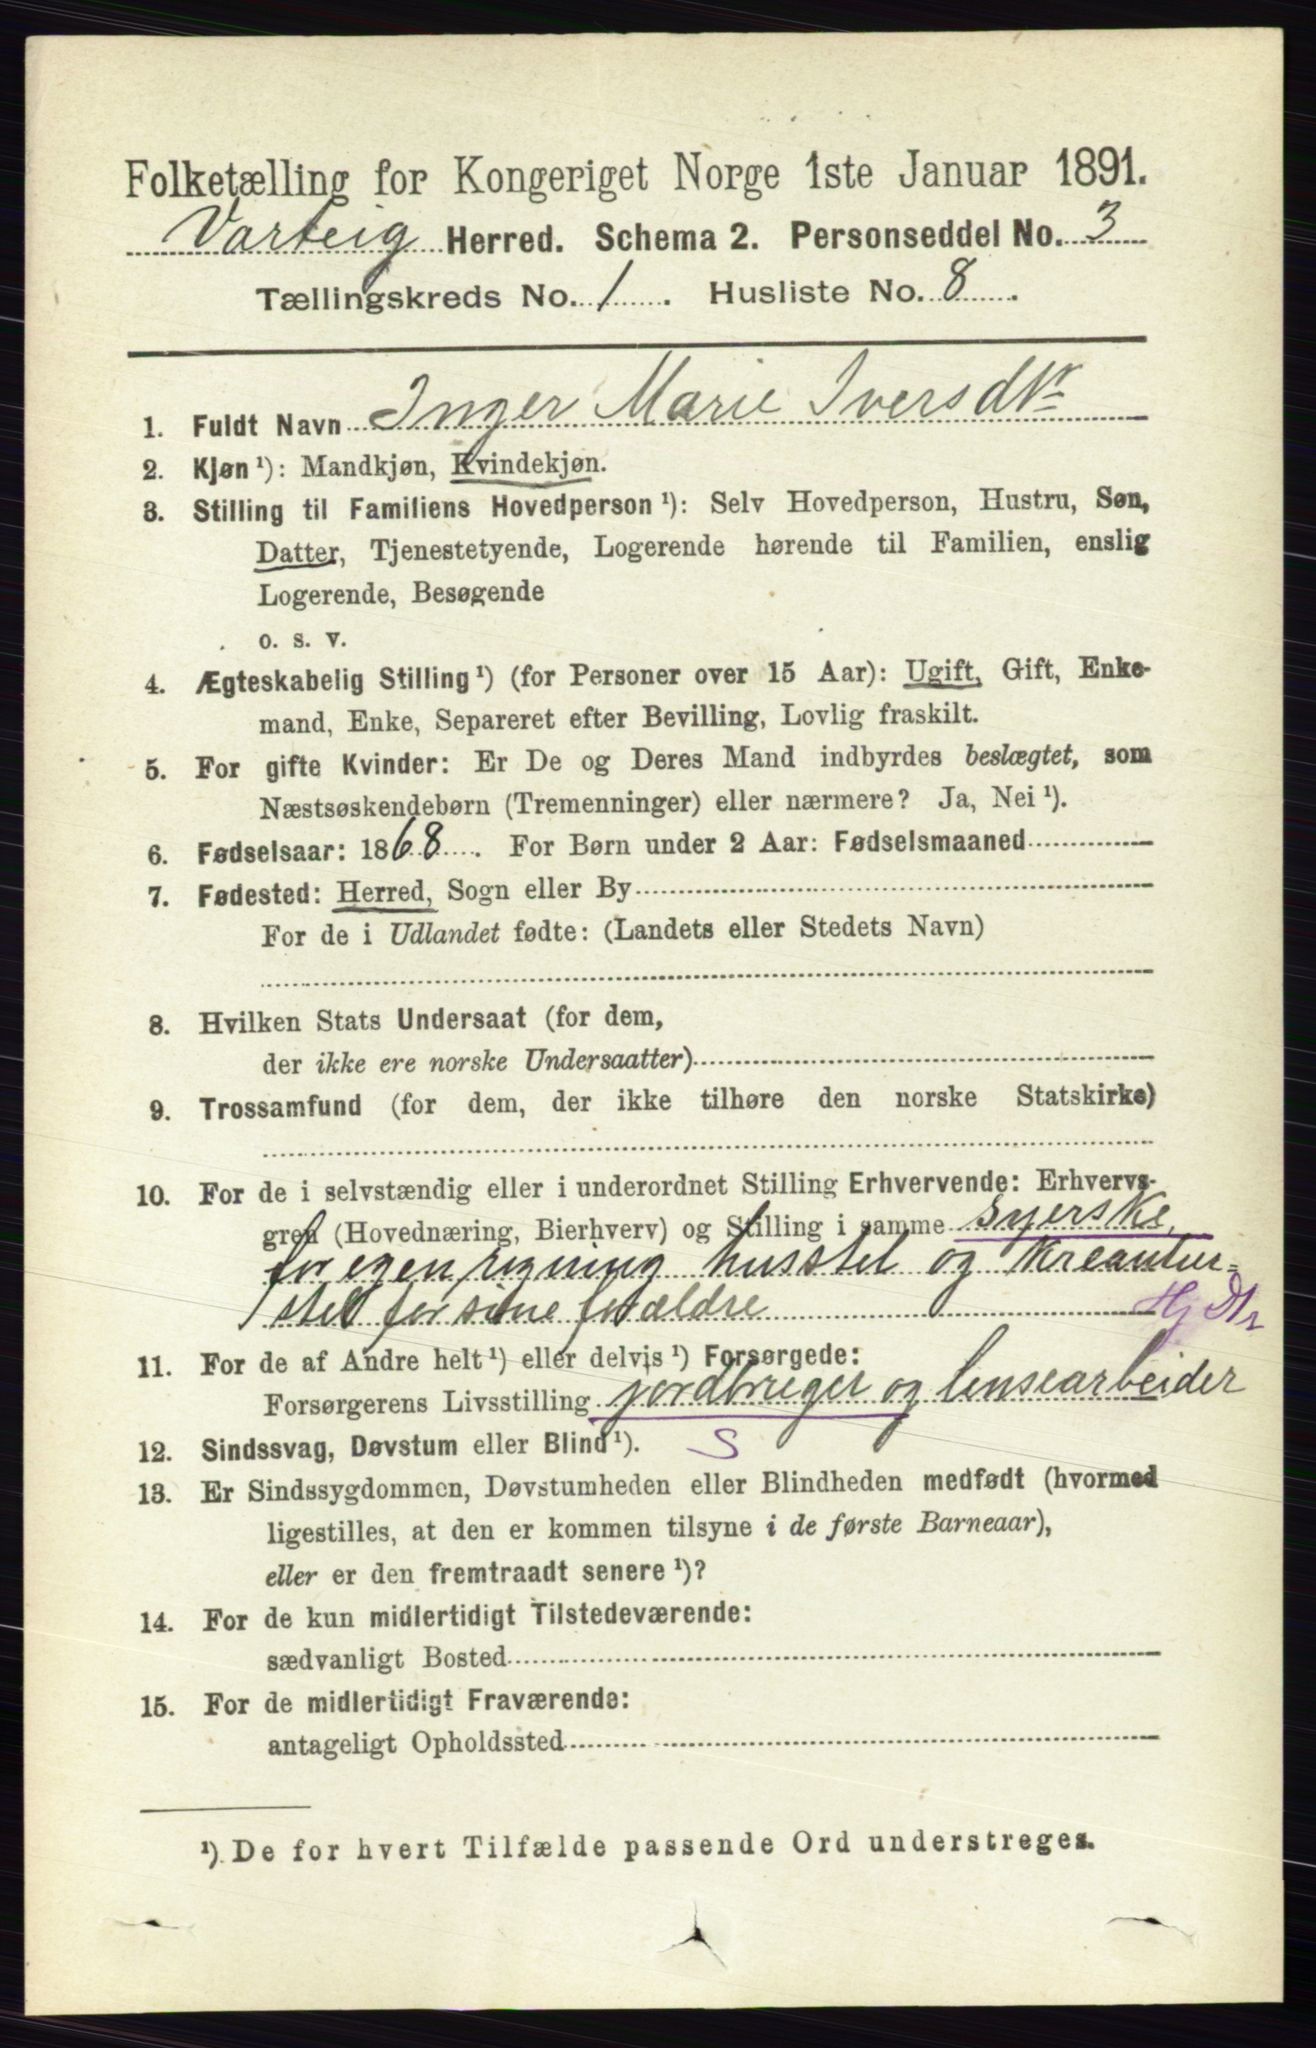 Folketælling for Kongeriget Norge 1ste Januar 1891.
Varteig Herred. Schema 2. Personseddel No. 3
Tællingskreds No. 1. Husliste No. 8.
1. Fuldt Navn Inger Marie Iversdtr
2. Kjøn ¹): Mandkjøn, Kvindekjøn.
3. Stilling til Familiens Hovedperson ¹): Selv Hovedperson, Hustru, Søn,
Datter, Tjenestetyende, Logerende hørende til Familien, enslig
Logerende, Besøgende
o. s. v.
4. Ægteskabelig Stilling ¹) (for Personer over 15 Aar): Ugift, Gift, Enke-
mand, Enke, Separeret efter Bevilling, Lovlig fraskilt.
5. For gifte Kvinder: Er De og Deres Mand indbyrdes beslægtet, som
Næstsøskendebørn (Tremenninger) eller nærmere? Ja, Nei ¹).
6. Fødselsaar: 1868. For Børn under 2 Aar: Fødselsmaaned
7. Fødested: Herred, Sogn eller By
For de i Udlandet fødte: (Landets eller Stedets Navn)
8. Hvilken Stats Undersaat (for dem,
der ikke ere norske Undersaatter)
9. Trossamfund (for dem, der ikke tilhøre den norske Statskirke)
10. For de i selvstændig eller i underordnet Stilling Erhvervende: Erhvervs-
gren (Hovednæring, Bierhverv) og Stilling i samme syerske,
for egen regning husstel og kreatur-
stel for sine forældre Hj Dtr
11. For de af Andre helt ¹) eller delvis ¹) Forsørgede:
Forsørgerens Livsstilling jordbruger og lensearbeider
12. Sindssvag, Døvstum eller Blind ¹). S
13. Er Sindssygdommen, Døvstumheden eller Blindheden medfødt (hvormed
ligestilles, at den er kommen tilsyne i de første Barneaar),
eller er den fremtraadt senere ¹)?
14. For de kun midlertidigt Tilstedeværende:
sædvanligt Bosted
15. For de midlertidigt Fraværende:
antageligt Opholdssted
¹) De for hvert Tilfælde passende Ord understreges.